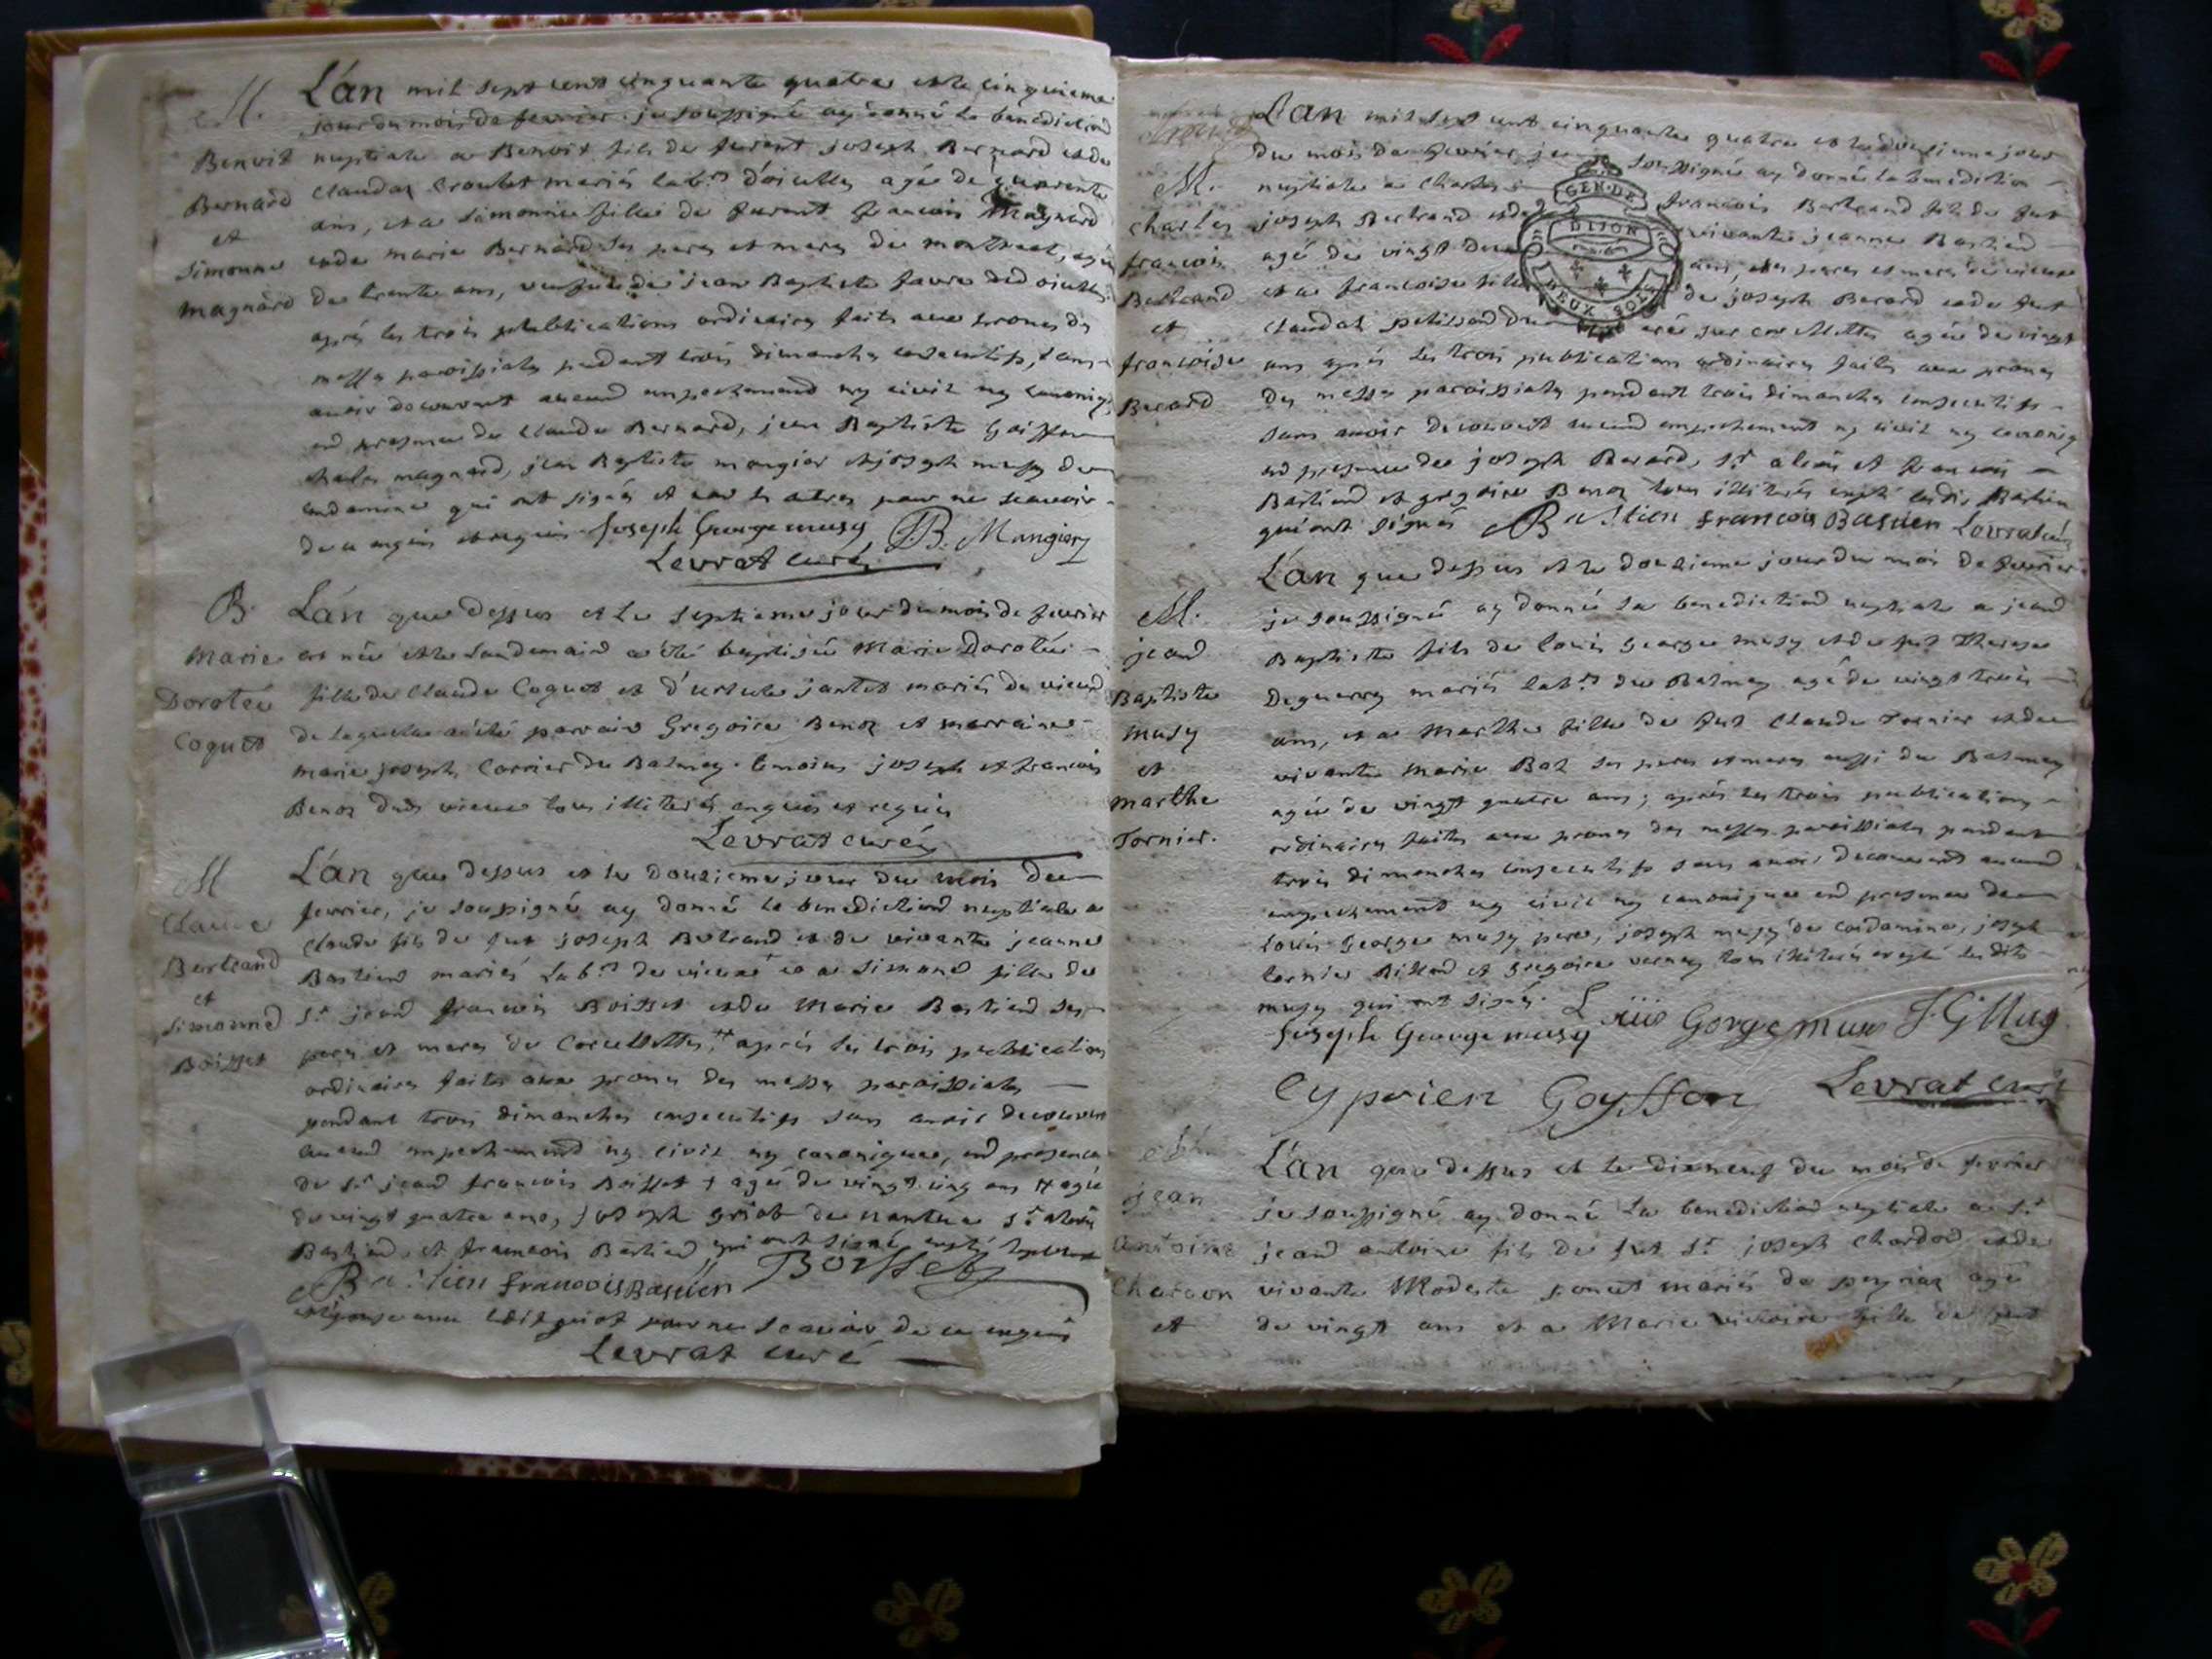 M.
Benoit
Bernard
et
Simonne
Magnard
L'an mil sept cent cinquante quatre et le cinquieme
jour du mois de fevrier je soussigné ay donné la benediction
nuptiale a Benoit fils de furent joseph Bernard et de
Claudaz Croulet mariés lab.rs d'oiselle agé de quarente
ans, et a Simonne fille de furent francois Magnard
et de marie Bernard ses pere et mere de montreal, agée
de trente ans, de jean Baptiste favre
aprés les trois publications ordinaires faits aux prones des
messes paroissiales pendant trois dimanches consecutifs, sans
avoir decouvert aucund empechemend ny civil ny canoniq
end presence de Claude Bernard, jean Baptiste Goiffon
charles magnard, jean Baptiste mangier et joseph musy de
condamine qui ont signés et non les autres pour ne scavoir
de ce enquis et requis Joseph George musy JB. Mangier
Levrat curé
B.
Marie
Dorotée
Coquet
L'an que dessus et le septieme jour du mois de fevrier
est née et le landemaid a été baptisée Marie Dorotée
fille de Claude Coquet et d'ursule jantet mariés de vieud
de laquelle a été parrain Gregoire Benoz et marraine
marie joseph Carrier du Balmay temoins joseph et francois
Benoz dud vieux tous illiterés enquis et requis
Levrat curé
M
Claude
Bertrand
et
Simonne
Boisset
L'an que dessus et le douzieme jour du mois de
fevrier, je soussigné ay donné la benediction nuptiale a
Claude fils de fut joseph Bertrand et de vivante jeanne
Bastiend mariés Lab.rs de vieux et a Simonne fille de
S.r jeand francois Boisset et de Marie Bastiend ses
pere et mere de Corcelettes, # aprés les trois publications
ordinaires faits aux prones des messes paroissiales
pendant trois dimanches consecutifs sans avoir decouvert
aucund empechemend ny civil ny canonique, end presence
de S.r jeand francois Boisset + agé de vingt cinq ans # agée
de vingt quatre ans, joseph griot de nantua S.r alexis
Bastiend, et francois Bastiend qui ont signé, excepté
Bastien francois Bastien Boisset
ledit griot pour ne scavoir de ce enquis
Levrat curé
M.
charles
francois
Bertrand
et
francoise
Berard
L'an mil sept cent cinquante quatre et le douzieme jour
du mois de fevrier je soussigné ay donné la benediction
nuptiale a Charles francois Bertrand fils de fut
joseph Bertrand et de vivante jeanne Bastiend
agé de vingt deux ans, ses pere et mere de vieux
et a francoise fille de joseph Berard et de fut
Claudaz agée de vingt
ans aprés les trois publications ordinaires faits aux prones
des messes paroissiales pendant trois dimanches consecutifs
sans avoir decouvert aucund empechement ny civil ny canoniq
end presence de joseph Berard, S.r alexis et francois
Bastiend et gregoire Benoz tous illiterés excepté lesdits Bastien
qui ont signés Bastien francois Bastien Levrat curé
M.
jeand
Baptiste
musy
et
marthe
Tornier.
L'an que dessus et le douzieme jour du mois de fevrier
je soussigné ay donné la benediction nuptiale a jeand
Baptiste fils de louis george musy et de fut Therese
Deguerry mariés lab.rs du Balmay agé de vingt trois
ans, et a Marthe fille de fut Claude Tornier et de
vivante Marie Baz ses pere et mere aussi du Balmay
agée de vingt quatre ans; aprés les trois publications
ordinaires faites aux prones des messes paroissiales pendant
trois dimanches consecutifs sans avoir decouvert aucund
empechement ny civil ny canonique end presence de
Louis George musy pere, joseph musy de condamine, joseph
tornier et gregoire tous illiterés excepté lesdits
musy qui ont signés. Louis Gorge mus J.G Mus
Joseph George musy
Cyprien Goyffon Levrat curé
M.
jean
antoine
Chardon
et
L'an que dessus et le dixneuf du mois de fevrier
je soussigné ay donné la benediction nuptiale a S.r
jeand antoine fils de fut S.r joseph Chardon et de
vivante Modeste poncet mariés de peyriaz agé
de vingt ans et a Marie victoire fille de fut
GEN. DE
DIJON
DEUX SOLS